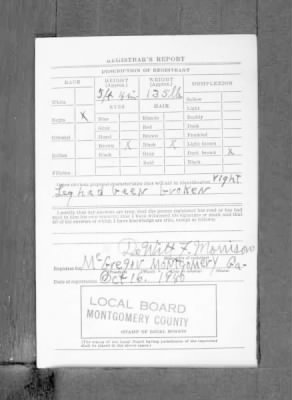 REGISTRAR'S REPORT
DESCRIPTION OF REGISTRANT
RACE HEIGHT (Approx.) WEIGHT (Approx.) COMPLEXION
5ft 4in 135 lb
White Sallow
EYES HAIR Light
Negro X Blue Blonde Ruddy
Gray Red Dark
Oriental Hazel Brown Freckled
Brown X Black X Light brown
Indian Black Gray Dark brown X
Bald Black
Filipino
Other obvious physical characteristics that will aid in identification right
Leg had been broken
I certify that my answers are true; that the person registered has read or has had
read to him his own answers; that I have witnessed his signature or mark and that
all of his answers of which I have knowledge are true, except as follows:
Morrison
Registrar for McGregor Montgomery Ga.
Date of registration Oct 16. 1940
LOCAL BOARD
MONTGOMERY COUNTY
STAMP OF LOCAL BOARD
(The stamp of the Local Board having jurisdiction of the registrant
shall be placed in the above space.)